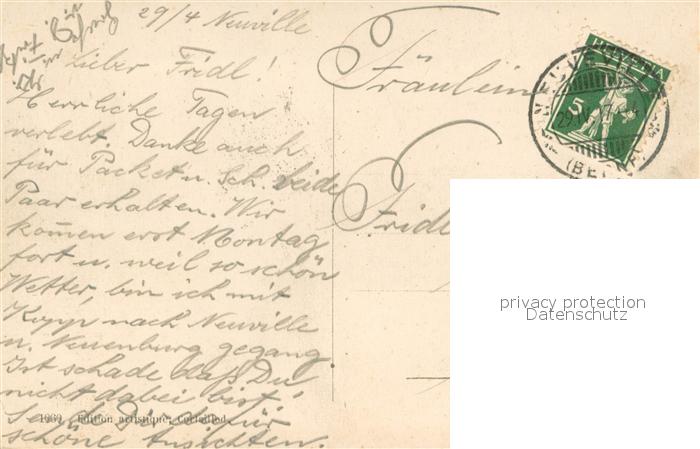 29/4 Neuville
Lieber Fridl!
Herrliche Tagen
verlebt. Danke auch
für Packet u. Sch. beide
Paar erhalten. Wir
kom̅en erst Montag
fort u. weil so schön
Wetter, bin ich mit
Kopp nach Neuville
u. Neuenburg gegang
Ist schade daß Du
nicht dabei bist!
schöne Ansichten.
1960 Edition artistique, Cortaillod
Fräulein
Fridl
HELVETIA
5
privacy protection
Datenschutz